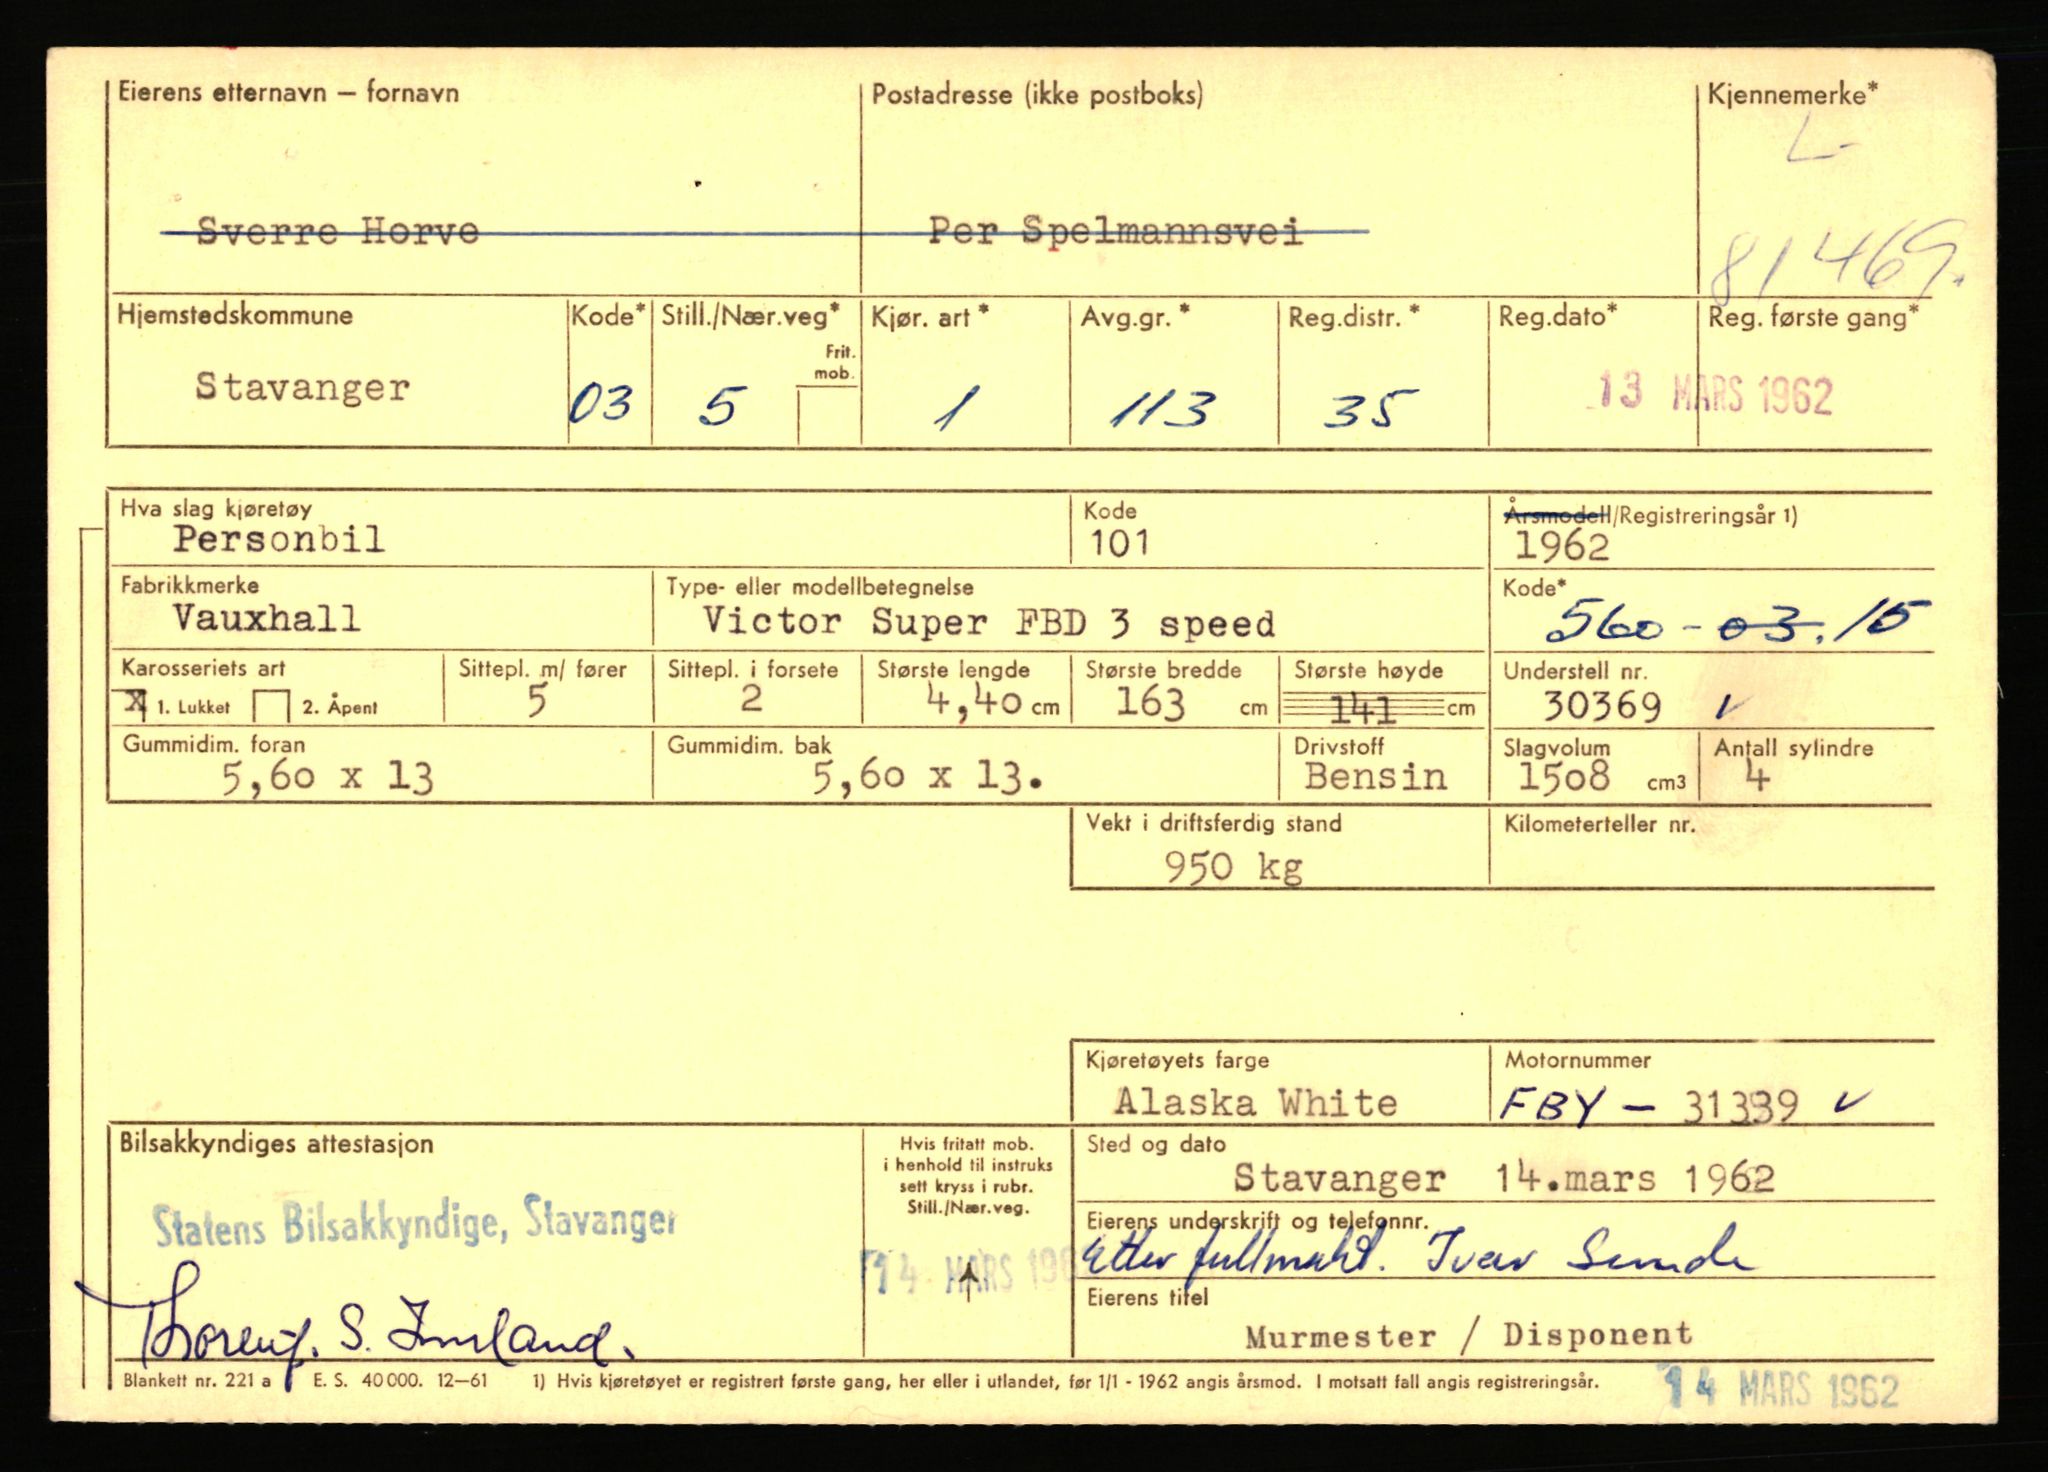 Eierens etternavn – fornavn Postadresse (ikke postboks) Kjennemerke*
L-
Sverre Horve Per Spelmannsvei
81469.
Hjemstedskommune Kode* Still./Nær.veg* Kjør. art* Avg.gr.* Reg.distr.* Reg.dato* Reg. første gang*
Frit.
mob.
Stavanger 03 5 1 113 35 13 MARS 1962
Hva slag kjøretøy Kode Årsmodell/Registreringsår 1)
Personbil 101 1962
Fabrikkmerke Type- eller modellbetegnelse Kode*
Vauxhall Victor Super FBD 3 speed 560-03.15
Karosseriets art Sittepl. m/ fører Sittepl. i forsete Største lengde Største bredde Største høyde Understell nr.
X 1. Lukket 2. Åpent 5 2 4,40 cm 163 cm 141 cm 30369 v
Gummidim. foran Gummidim. bak Drivstoff Slagvolum Antall sylindre
5,60 x 13 5,60 x 13. Bensin 1508 cm3 4
Vekt i driftsferdig stand Kilometerteller nr.
950 kg
Kjøretøyets farge Motornummer
Alaska White FBY – 31339 v
Bilsakkyndiges attestasjon
Hvis fritatt mob.
i henhold til instruks
sett kryss i rubr.
Still./Nær.veg.
Sted og dato
Stavanger 14.mars 1962
Statens Bilsakkyndige, Stavanger
14 MARS 1962
Eierens underskrift og telefonnr.
Etter fullmakt. Iver Sunde
Eierens titel
S.
Murmester / Disponent
Blankett nr. 221 a E. S. 40 000. 12—61 1) Hvis kjøretøyet er registrert første gang, her eller i utlandet, før 1/1 - 1962 angis årsmod. I motsatt fall angis registreringsår.
14 MARS 1962